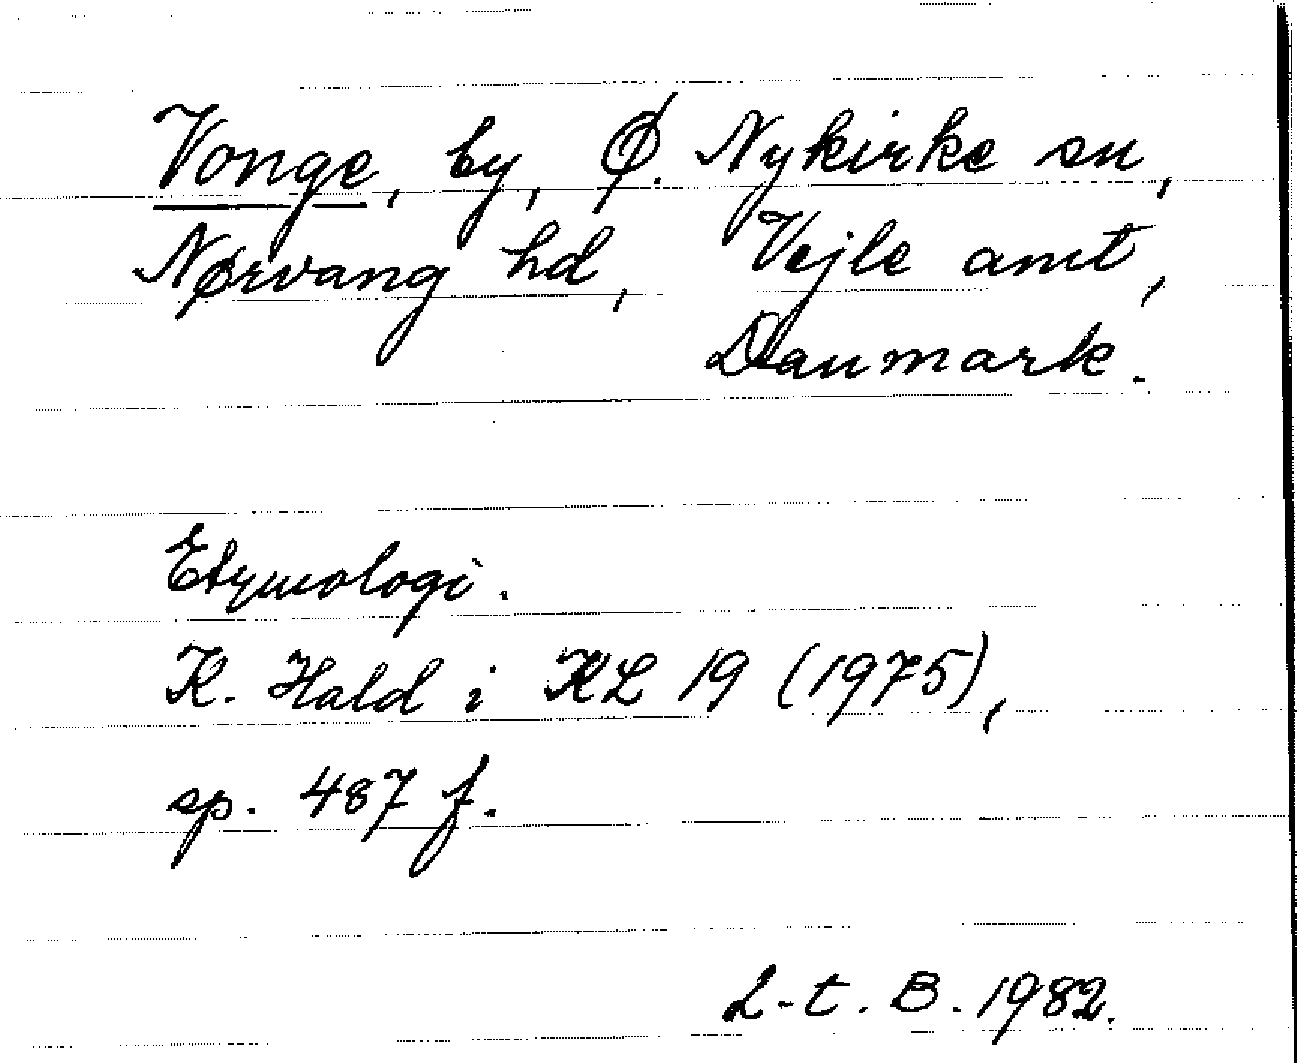 Vonge, by, Ø. Nykirke sn,
Nørvang hd, Vejle amt,
Danmark.
Etymologi.
K. Hald i KL 19 (1975),
sp. 487 f.
L-t. B. 1982.